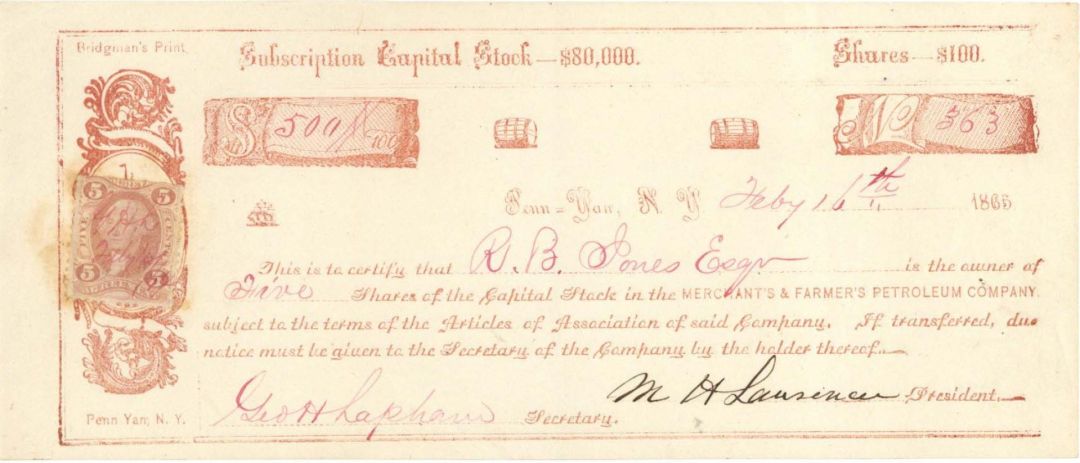 Bridgman's Print.
Subscription Capital Stock—$80,000. Shares—$100.
$ 500 /100 No 363
Penn-Yan, N. Y. Feby 16th 1865
This is to certify that R. B. Jones Esqr is the owner of
Five Shares of the Capital Stock in the MERCHANT'S & FARMER'S PETROLEUM COMPANY.
subject to the terms of the Articles of Association of said Company. If transferred, due
notice must be given to the Secretary of the Company by the holder thereof.
Geo H Lapham Secretary. M H Lawrence President.
Penn Yan, N. Y.
5 5
FIVE CENTS
5 5